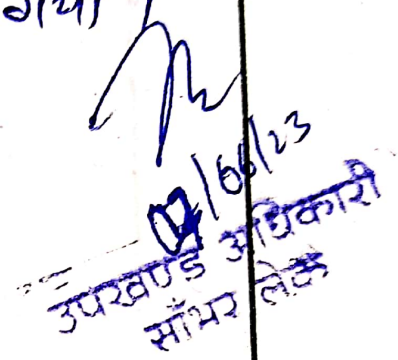 गया
/06/23
उपखण्ड अधिकारी
साँभर लेक